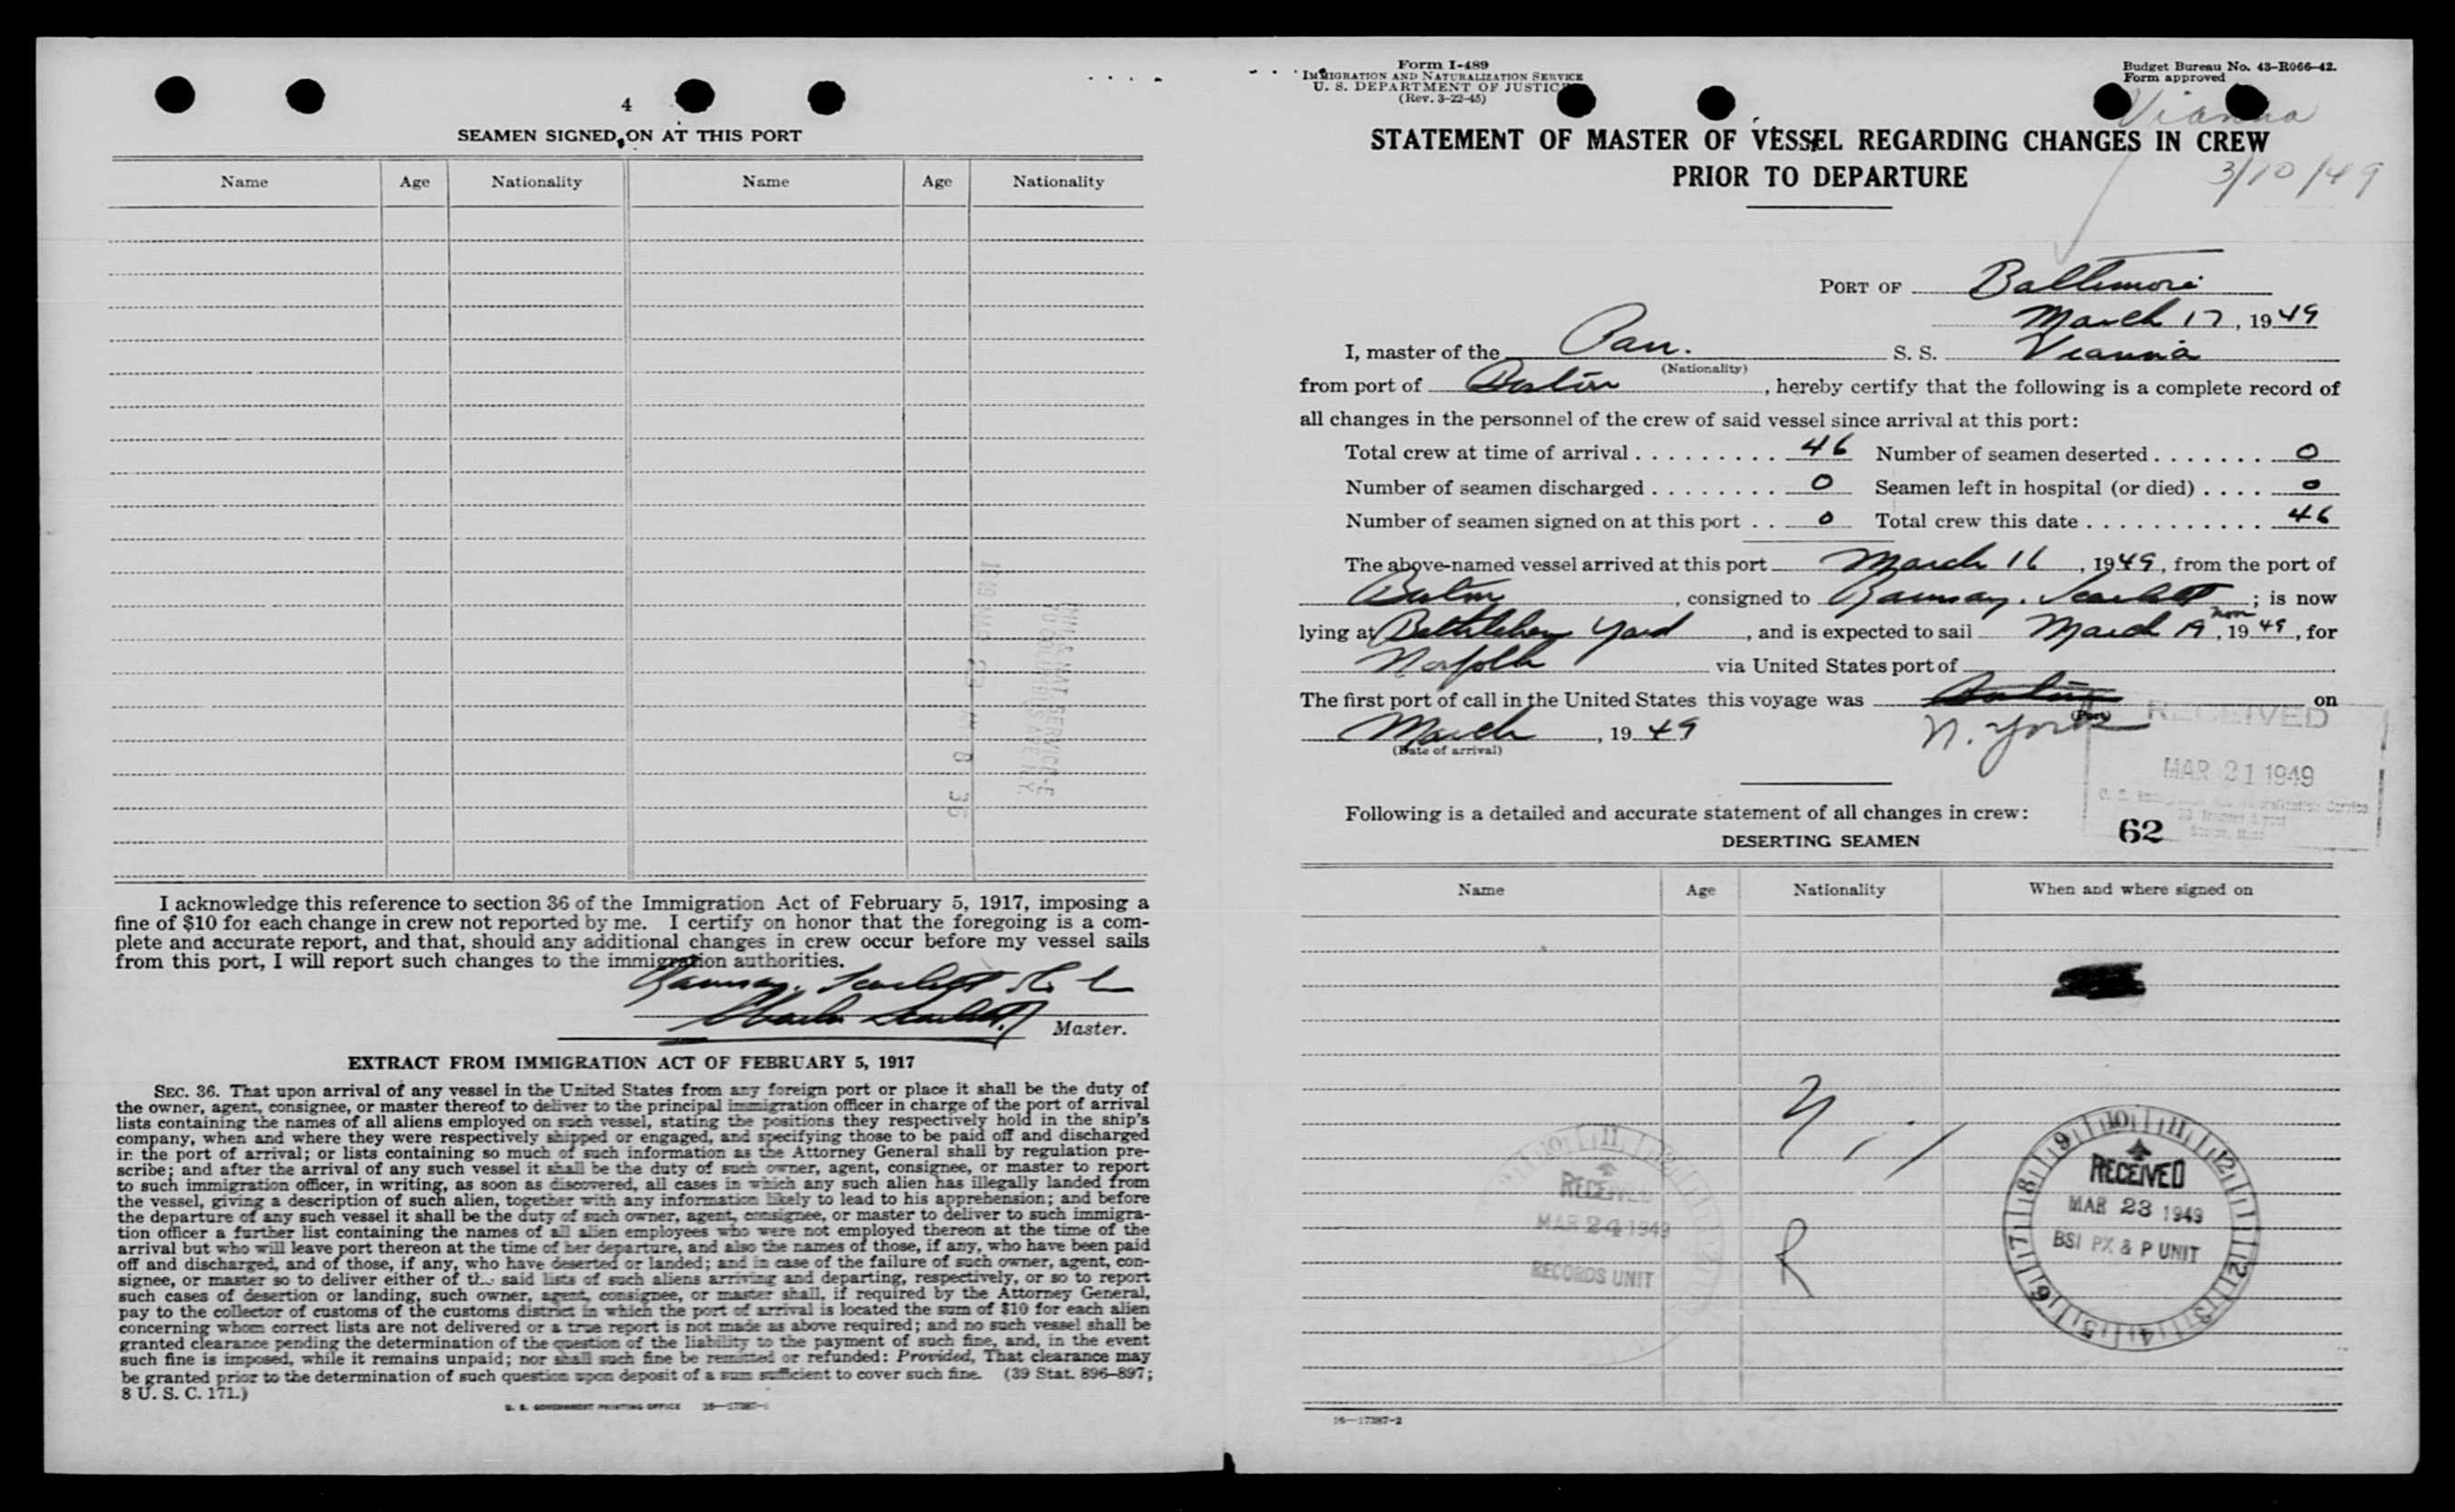 4
SEAMEN SIGNED ON AT THIS PORT
Name Age Nationality Name Age Nationality
I acknowledge this reference to section 36 of the Immigration Act of February 5, 1917, imposing a
fine of $10 for each change in crew not reported by me. I certify on honor that the foregoing is a com-
plete and accurate report, and that, should any additional changes in crew occur before my vessel sails
from this port, I will report such changes to the immigration authorities.
Ramsay, Scarlett
Charles Scarlett Master.
EXTRACT FROM IMMIGRATION ACT OF FEBRUARY 5, 1917
SEC. 36. That upon arrival of any vessel in the United States from any foreign port or place it shall be the duty of
the owner, agent, consignee, or master thereof to deliver to the principal immigration officer in charge of the port of arrival
lists containing the names of all aliens employed on such vessel, stating the positions they respectively hold in the ship's
company, when and where they were respectively shipped or engaged, and specifying those to be paid off and discharged
in the port of arrival; or lists containing so much of such information as the Attorney General shall by regulation pre-
scribe; and after the arrival of any such vessel it shall be the duty of such owner, agent, consignee, or master to report
to such immigration officer, in writing, as soon as discovered, all cases in which any such alien has illegally landed from
the vessel, giving a description of such alien, together with any information likely to lead to his apprehension; and before
the departure of any such vessel it shall be the duty of such owner, agent, consignee, or master to deliver to such immigra-
tion officer a further list containing the names of all alien employees who were not employed thereon at the time of the
arrival but who will leave port thereon at the time of her departure, and also the names of those, if any, who have been paid
off and discharged, and of those, if any, who have deserted or landed; and in case of the failure of such owner, agent, con-
signee, or master so to deliver either of the said lists of such aliens arriving and departing, respectively, or so to report
such cases of desertion or landing, such owner, agent, consignee, or master shall, if required by the Attorney General,
pay to the collector of customs of the customs district in which the port of arrival is located the sum of $10 for each alien
concerning whom correct lists are not delivered or a true report is not made as above required; and no such vessel shall be
granted clearance pending the determination of the question of the liability to the payment of such fine, and, in the event
such fine is imposed, while it remains unpaid; nor shall such fine be remitted or refunded: Provided, That clearance may
be granted prior to the determination of such question upon deposit of a sum sufficient to cover such fine. (39 Stat. 896–897;
8 U. S. C. 171.)
U. S. GOVERNMENT PRINTING OFFICE 16—17387-1
Form I-489
IMMIGRATION AND NATURALIZATION SERVICE
U. S. DEPARTMENT OF JUSTICE
(Rev. 3-22-45)
Budget Bureau No. 43-R066-42.
Form approved
Vianna
3/10/49
STATEMENT OF MASTER OF VESSEL REGARDING CHANGES IN CREW
PRIOR TO DEPARTURE
PORT OF Baltimore
March 17, 1949
I, master of the Pan. S. S. Vianna
(Nationality)
from port of Boston, hereby certify that the following is a complete record of
all changes in the personnel of the crew of said vessel since arrival at this port:
Total crew at time of arrival . . . . . . . . . . 46 Number of seamen deserted . . . . . . . 0
Number of seamen discharged . . . . . . . . 0 Seamen left in hospital (or died) . . . . 0
Number of seamen signed on at this port . . 0 Total crew this date . . . . . . . . . . . . 46
The above-named vessel arrived at this port March 16, 1949, from the port of
Boston, consigned to Ramsay, Scarlett; is now
lying at Bethlehem Yard, and is expected to sail March 19 noon, 1949, for
Norfolk via United States port of
The first port of call in the United States this voyage was Boston on
March, 1949 N. York
(Date of arrival) (Port)
RECEIVED
MAR 21 1949
Following is a detailed and accurate statement of all changes in crew:
62
DESERTING SEAMEN
Name Age Nationality When and where signed on
R
RECEIVED
MAR 24 1949
RECORDS UNIT
RECEIVED
MAR 23 1949
BSI PX & P UNIT
16—17387-2